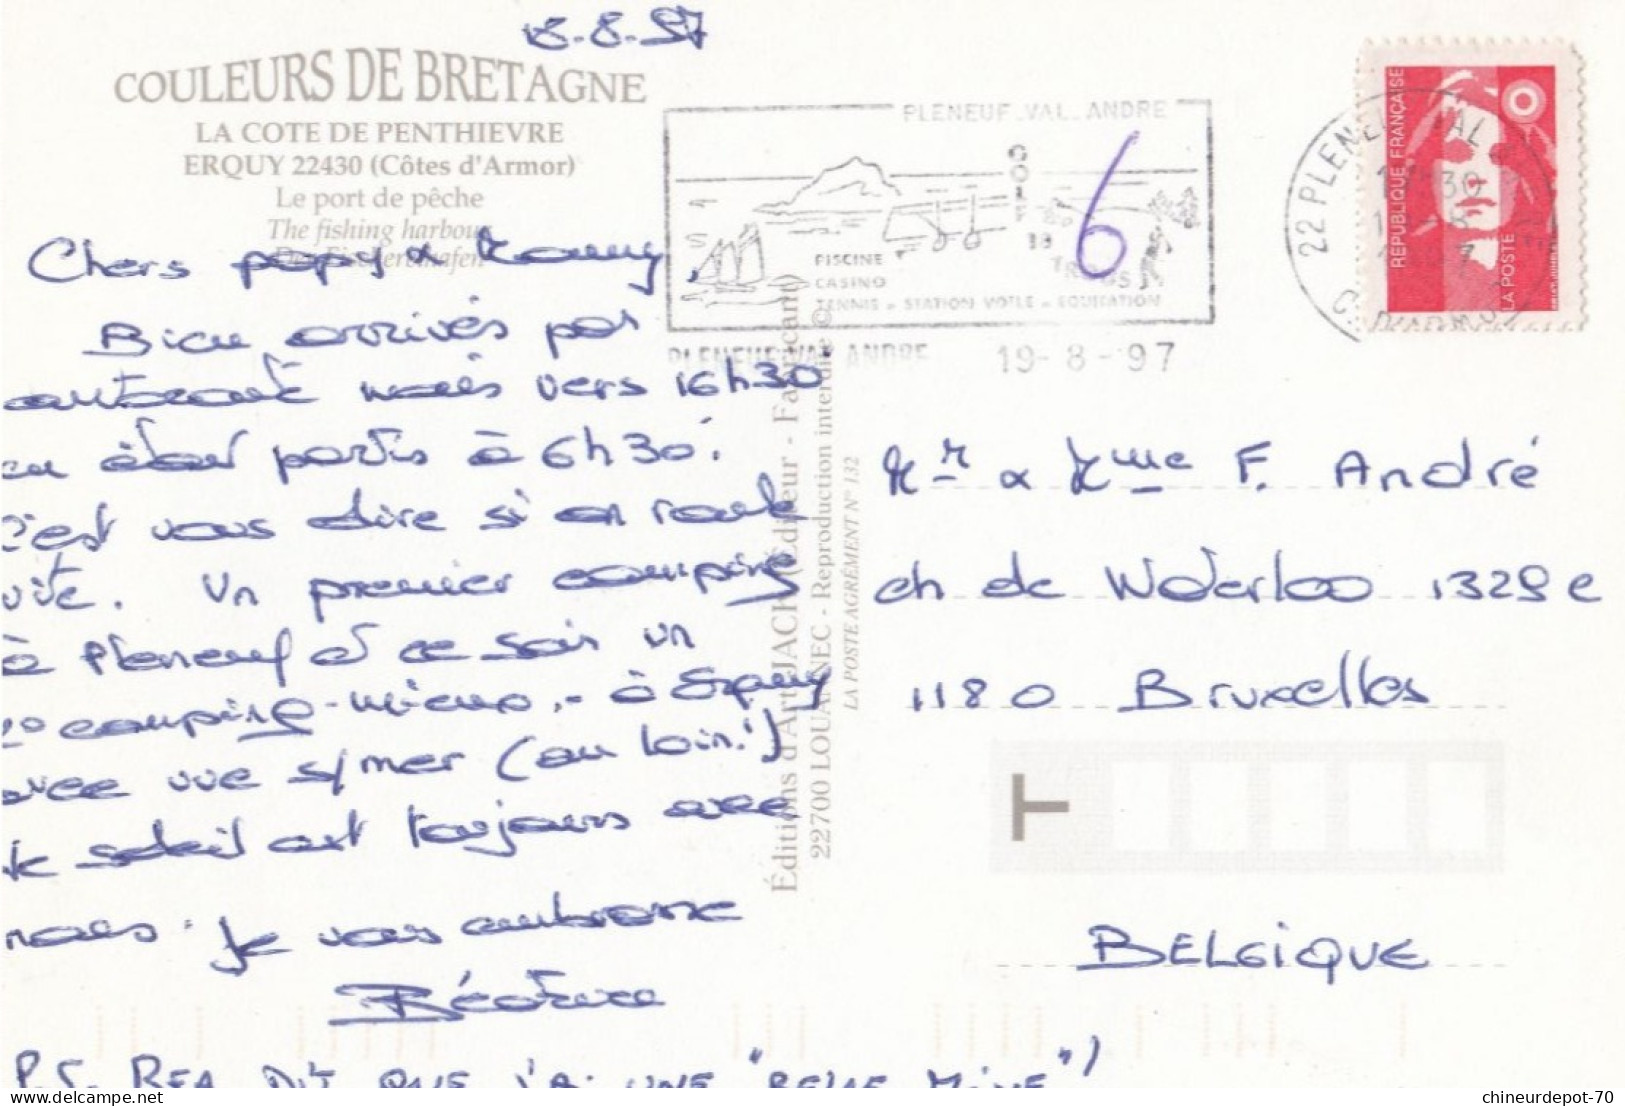 18.8.97
COULEURS DE BRETAGNE
LA COTE DE PENTHIEVRE
ERQUY 22430 (Côtes d'Armor)
Le port de pêche
The fishing harbour
Der Fischereihafen
PLENEUF VAL ANDRE
GOLF
18
TROUS
6
PISCINE
CASINO
TENNIS - STATION VOILE - EQUITATION
PLENEUF VAL ANDRE 19-8-97
22 PLENEUF VAL
RÉPUBLIQUE FRANÇAISE
LA POSTE
Chers papy & Mamy,
Bien arrivés pas
autoroute mais vers 16h30
en étant partis à 6h30!
c'est vous dire si on roule
vite. Un premier camping
à Pleneuf et ce soir un
2º camping - mieux - à Erquy
avec vue s/mer (au loin!)
le soleil est toujours avec
nous. Je vous embrasse
Béatrice
P.S. BEA DIT QUE J'AI UNE "BELLE MINE"!
Éditions d'Art JACK (Éditeur - Fabricant)
22700 LOUANNEC - Reproduction interdite ©
LA POSTE AGRÉMENT N° 132
Mr & Mme F. André
ch de Waterloo 1329 e
1180 Bruxelles
T
BELGIQUE
chineurdepot-70